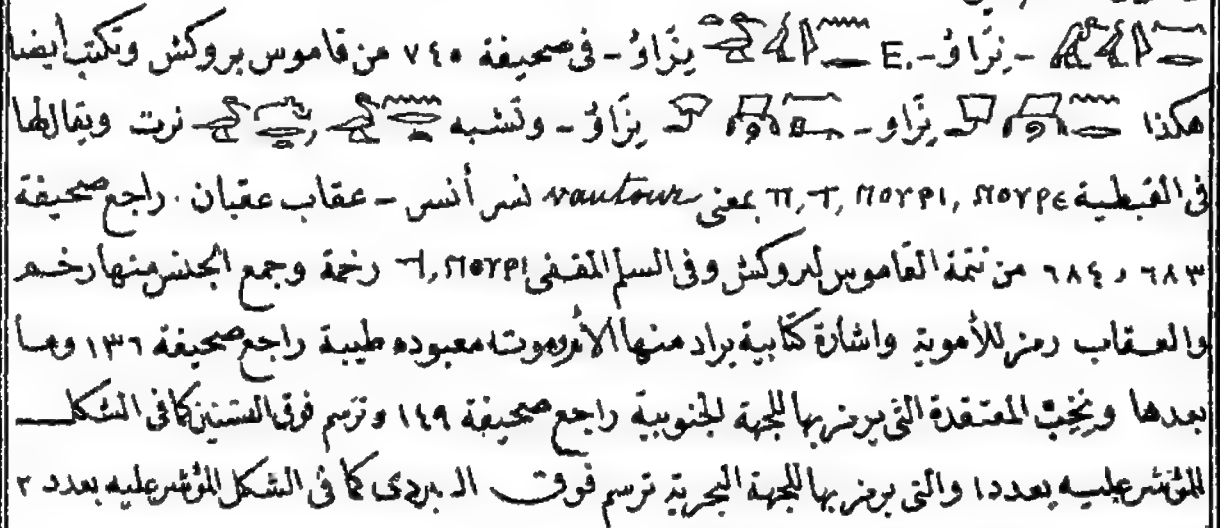 - نزَاوُ -.E نِزَاوُ - فى صحيفة ٧٤٥ من قاموس بروكش وتكتب أيضا
هكذا نِزَاو - نِزَاوُ - وتشبه , نرت ويقال لها
فى القبطية ⲡ, ⲧ, ⲛⲟⲩⲣⲓ, ⲛⲟⲩⲣⲉ بمعنى vautour نسر أنسر - عقاب عقبان . راجع صحيفة
٦٨٣ و ٦٨٤ من تتمة القاموس لبروكش وفى السلم المقفى ϯ, ⲛⲟⲩⲣⲓ رخمة وجمع الجنس منها رخم
والعقاب رمز للأموية واشارة كتابية يراد منها الأم وموت معبوده طيبة راجع صحيفة ١٣٦ وما
بعدها ونخب المعتقدة التى يرمز بها للجهة الجنوبية راجع صحيفة ١٤٩ وترسم فوق السنين كما فى الشكل
المؤشر عليه بعدد ١ والتى يرمز بها للجهة البحرية ترسم فوق البردى كما فى الشكل المؤشر عليه بعدد ٢